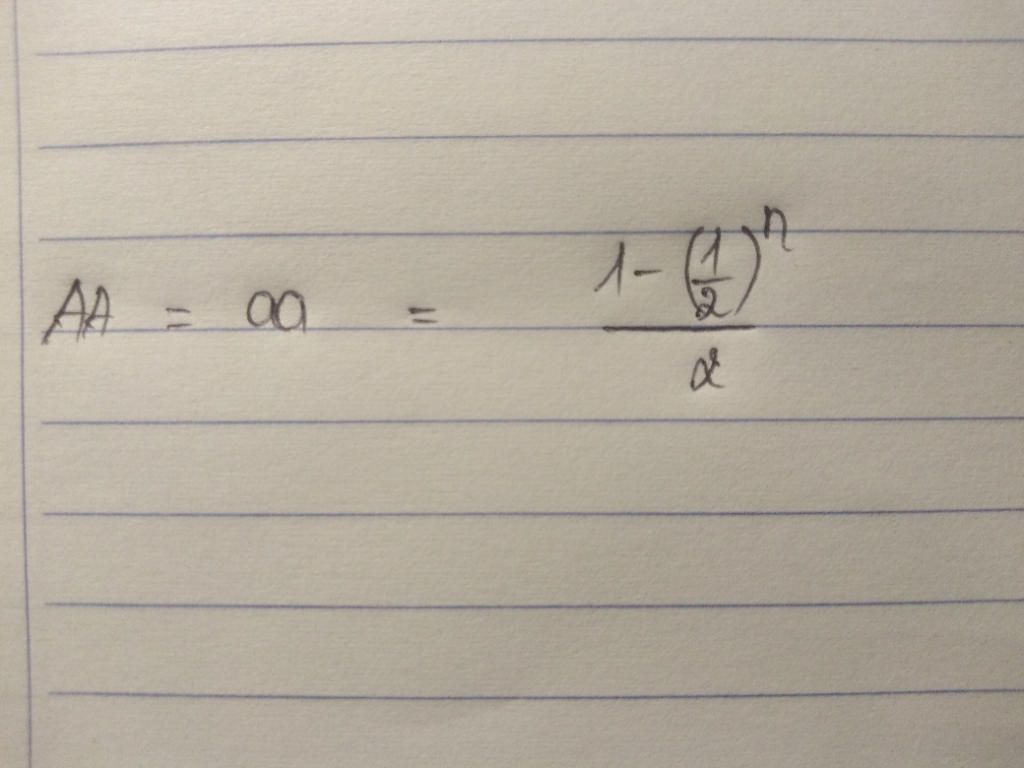 AA = aa = \frac{1-\left(\frac{1}{2}\right)^n}{2}